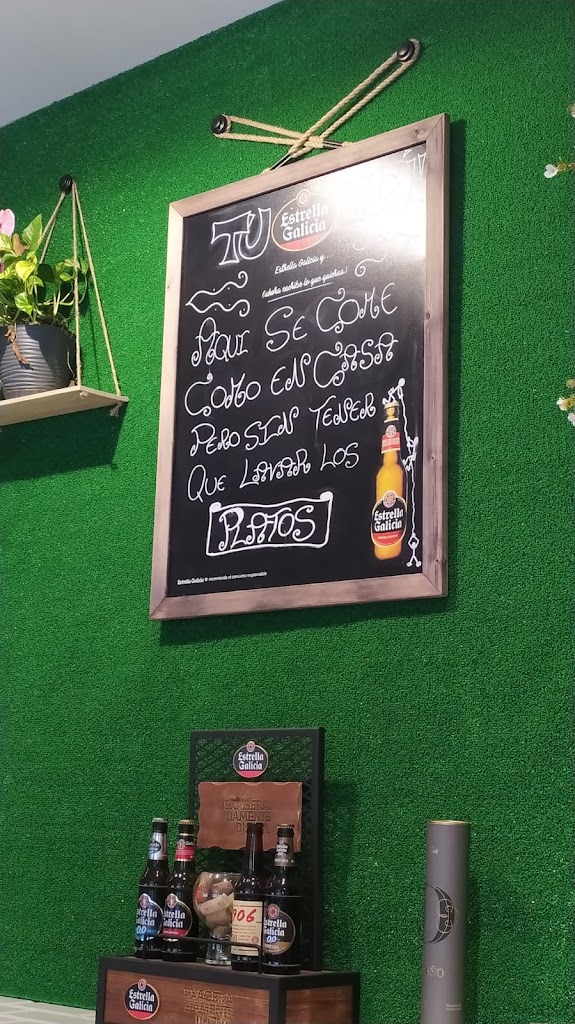 TU
Estrella
Galicia
Estrella Galicia y....
(ahora escribe lo que quieras)
AQUI SE COME
COMO EN CASA
PERO SIN TENER
QUE LAVAR LOS
PLATOS
Estrella
Galicia
Estrella Galicia recomienda el consumo responsable
Estrella
Galicia
DAMENTE
Estrella
Galicia
0,0
Estrella
Galicia
906
Estrella
Galicia
0,0
Estrella
Galicia